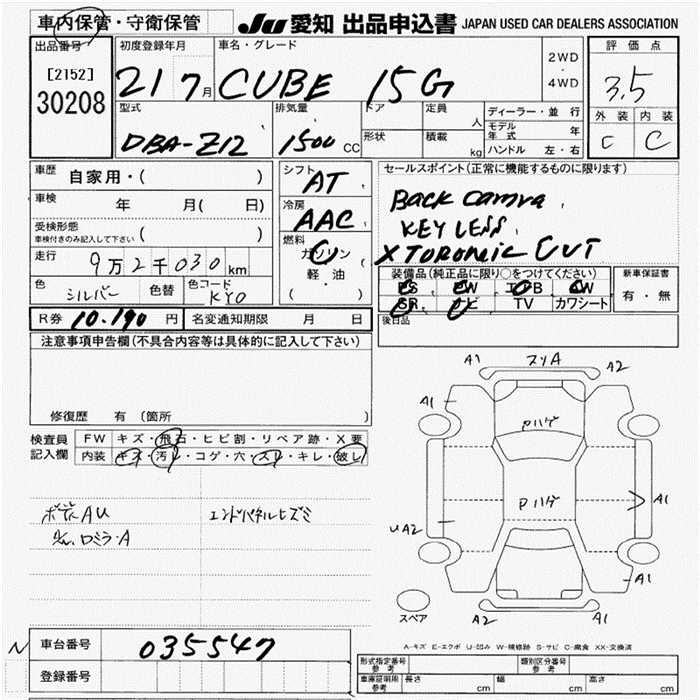 車内保管・守衛保管
JU 愛知 出品申込書 JAPAN USED CAR DEALERS ASSOCIATION
出品番号
[2152]
30208
初度登録年月
21 7月
車名・グレード
CUBE 15G
2WD
・
4WD
評価点
3.5
外装 内装
C C
型式
DBA-Z12
排気量
1500 CC
ドア
形状
定員
人
積載
kg
ディーラー・並行
モデル年式 年
ハンドル 左・右
車歴 自家用・( )
車検 年 月( 日)
受検形態
車検付きのみ記入して下さい ( )
走行 9万2千030km
色 シルバー 色替 色コード KYO
シフト AT
冷房 AAC
燃料 ガソリン
軽油・
( )
セールスポイント(正常に機能するものに限ります)
Back camra
KEYLESS
CVT
装備品(純正品に限り○をつけてください)
PS PW エアB AW
SR ナビ TV カワシート
新車保証書
有・無
後日品
R券 10.190円 名変通知期限 月 日
注意事項申告欄(不具合内容等は具体的に記入して下さい)
修復歴 有(箇所 )
検査員
記入欄
FW キズ・飛石・ヒビ割・リペア跡・X要
内装 キズ・汚レ・コゲ・穴・スレ・キレ・破レ
ボディAU
ロミラ・A
エンドパネルヒズミ
A1 スリA A2
A1
Pハゲ
Pハゲ
A1
UA2
A1
スペア
A2 A1
A-キズ E-エクボ U-凹み W-補修跡 S-サビ C-腐食 XX-交換済
N
車台番号 035547
登録番号
形式指定番号
参考
類別区分番号
参考
車庫証明用
参考
長さ cm 幅 cm 高さ cm